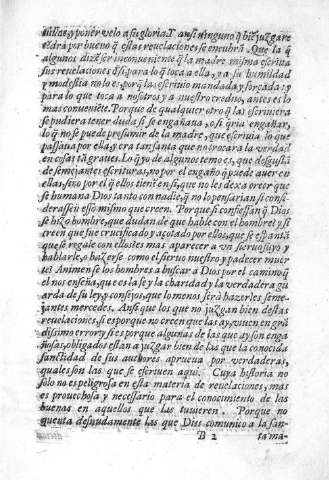 uillas, y poner velo a su gloria. Y ansi ninguno q̃ biẽ juzgare
tẽdrà por bueno q̃ estas reuelaciones se encubrã. Que lo q̃
algunos dizẽ ser inconueniẽte q̃ la madre misma escriua
sus reuelaciones d̃ si, para lo q̃ toca a ella, y a su humildad
y modestia no lo es, porq̃ las escriuio mandada y forçada: y
para lo que toca a nosotros y a nuestro credito, antes es lo
mas conueniẽte. Porque de qualquier otro q̃ las escriuiera
se pudiera tener duda si se engañaua, o si q̃ria engañar,
lo q̃ no se puede presumir de la madre, que escriuia lo que
passaua por ella, y era tan santa que no trocara la verdad
en cosas tã graues. Lo q̃ yo de algunos temo es, que desgustã
de semejantes escrituras, no por el engaño q̃ puede auer en
ellas, sino por el q̃ ellos tienẽ en si, que no les dexa creer que
se humana Dios tanto con nadie, q̃ no lo pensariã si consi
derassẽ esso mismo que creen. Porque si confiessan q̃ Dios
se hizo hombre, que dudan de que hable con el hombre? y si
creen que fue crucificado y açotado por ellos, que se espantã
que se regale con ellos? es mas aparecer a vn sieruo suyo y
hablarle, o hazerse como el sieruo nuestro y padecer muer
te? Animen se los hombres a buscar a Dios por el camino q̃
el nos enseña, que es la fe y la charidad y la verdadera gu
arda de su ley, y consejos, que lo menos serà hazerles seme-
jantes mercedes. Ansi que los que no juzgan bien destas
reuelaciones, si es porque no creen que las ay, viuen en grã
dissimo error: y si es porque algunas de las que ay son enga
ñosas, obligados estan a juzgar bien de las que la conocida
santidad de sus autores aprueua por verdaderas,
quales son las que se escriuen aqui. Cuya historia no
solo no es peligrosa en esta materia de reuelaciones, mas
es prouechosa y necessaria para el conocimiento de las
buenas en aquellos que las tuuieren. Porque no
cuenta desnudamente las que Dios comunicò a la san-
B 2 ta ma-